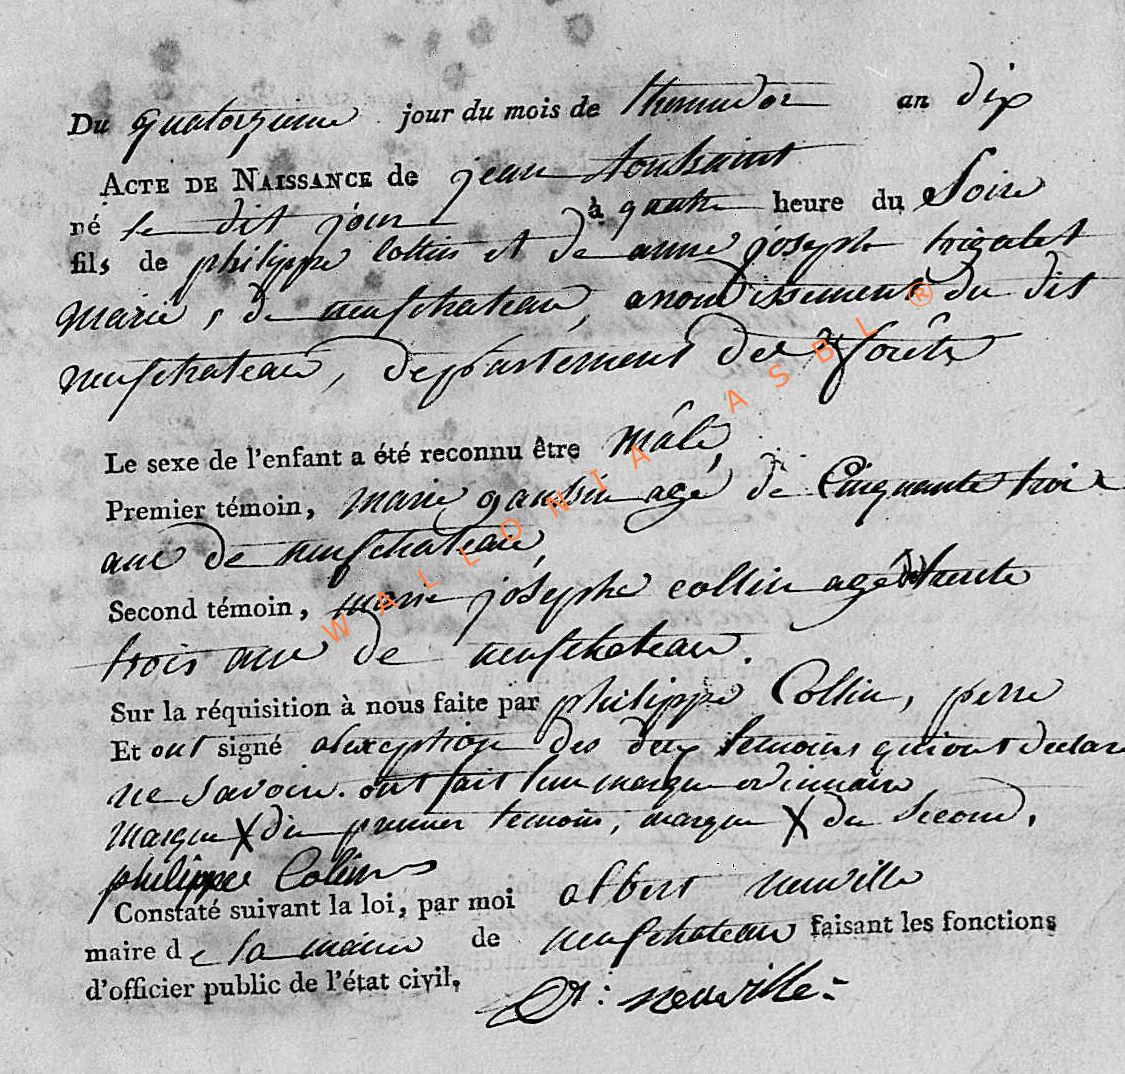 Du quatorzieme jour du mois de thermidor an dix
ACTE DE NAISSANCE de jean toussaint
né le dit jour à quatre heure du Soire
fils de philippe collin et de anne joseph
marié, de neufchateau, arrondissement du dit
neufchateau, departement des forêts
Le sexe de l'enfant a été reconnu être mâle,
Premier témoin, marie agé de Cinquante trois
ans de neufchateau,
Second témoin, marie josephe collin agé de trente
trois ans de neufchateau.
Sur la réquisition à nous faite par philippe Collin, perre
Et ont signé a lexception des deux temoins qui ont declare
ne savoir. ont fait leur marque ordinaire
marque X du premier temoin, marque X du second,
philippe Colin
Constaté suivant la loi, par moi albert neuville
maire de la mairie de neufchateau faisant les fonctions
d'officier public de l'état civil,
neuville
WALLONIA ASBL ®